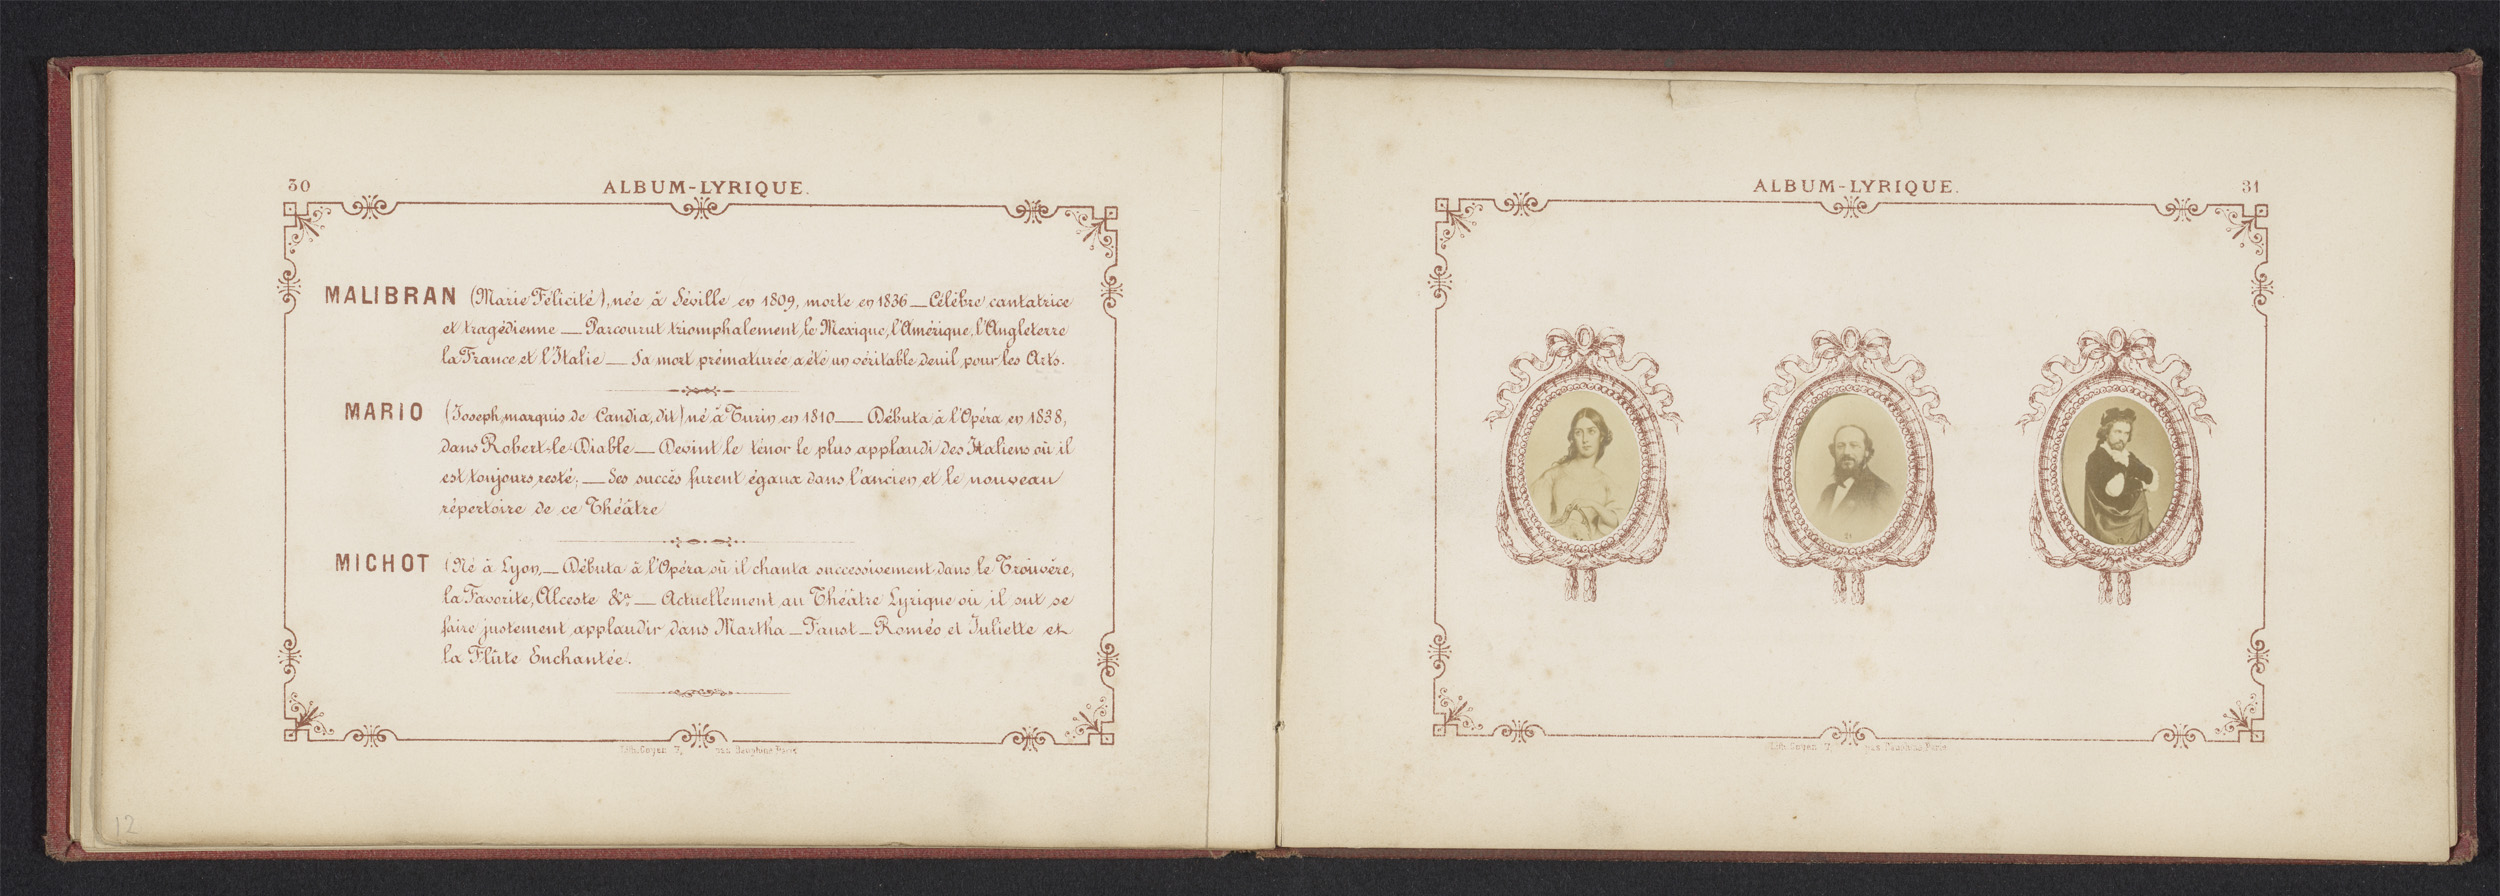 30
ALBUM-LYRIQUE.
MALIBRAN (Marie Félicité), née à Séville en 1809, morte en 1836 — Célèbre cantatrice
et tragédienne — Parcourut triomphalement, le Mexique, l'Amérique, l'Angleterre
la France et l'Italie — Sa mort prématurée a été un véritable deuil pour les Arts.
MARIO (Joseph, marquis de Candia, dit) né à Turin en 1810 — Débuta à l'Opéra en 1838,
dans Robert-le-Diable — Devint le ténor le plus applaudi des Italiens où il
est toujours resté; — Ses succès furent égaux dans l'ancien et le nouveau
répertoire de ce Théâtre
MICHOT (Né à Lyon, — Débuta à l'Opéra où il chanta successivement dans le Trouvère,
la Favorite, Alceste &a — Actuellement au Théâtre Lyrique où il sut se
faire justement applaudir dans Martha — Faust — Roméo et Juliette et
la Flûte Enchantée.
Lith. Goyer 7, pas Dauphine Paris
12
ALBUM-LYRIQUE.
31
Lith. Goyer 7, pas Dauphine Paris